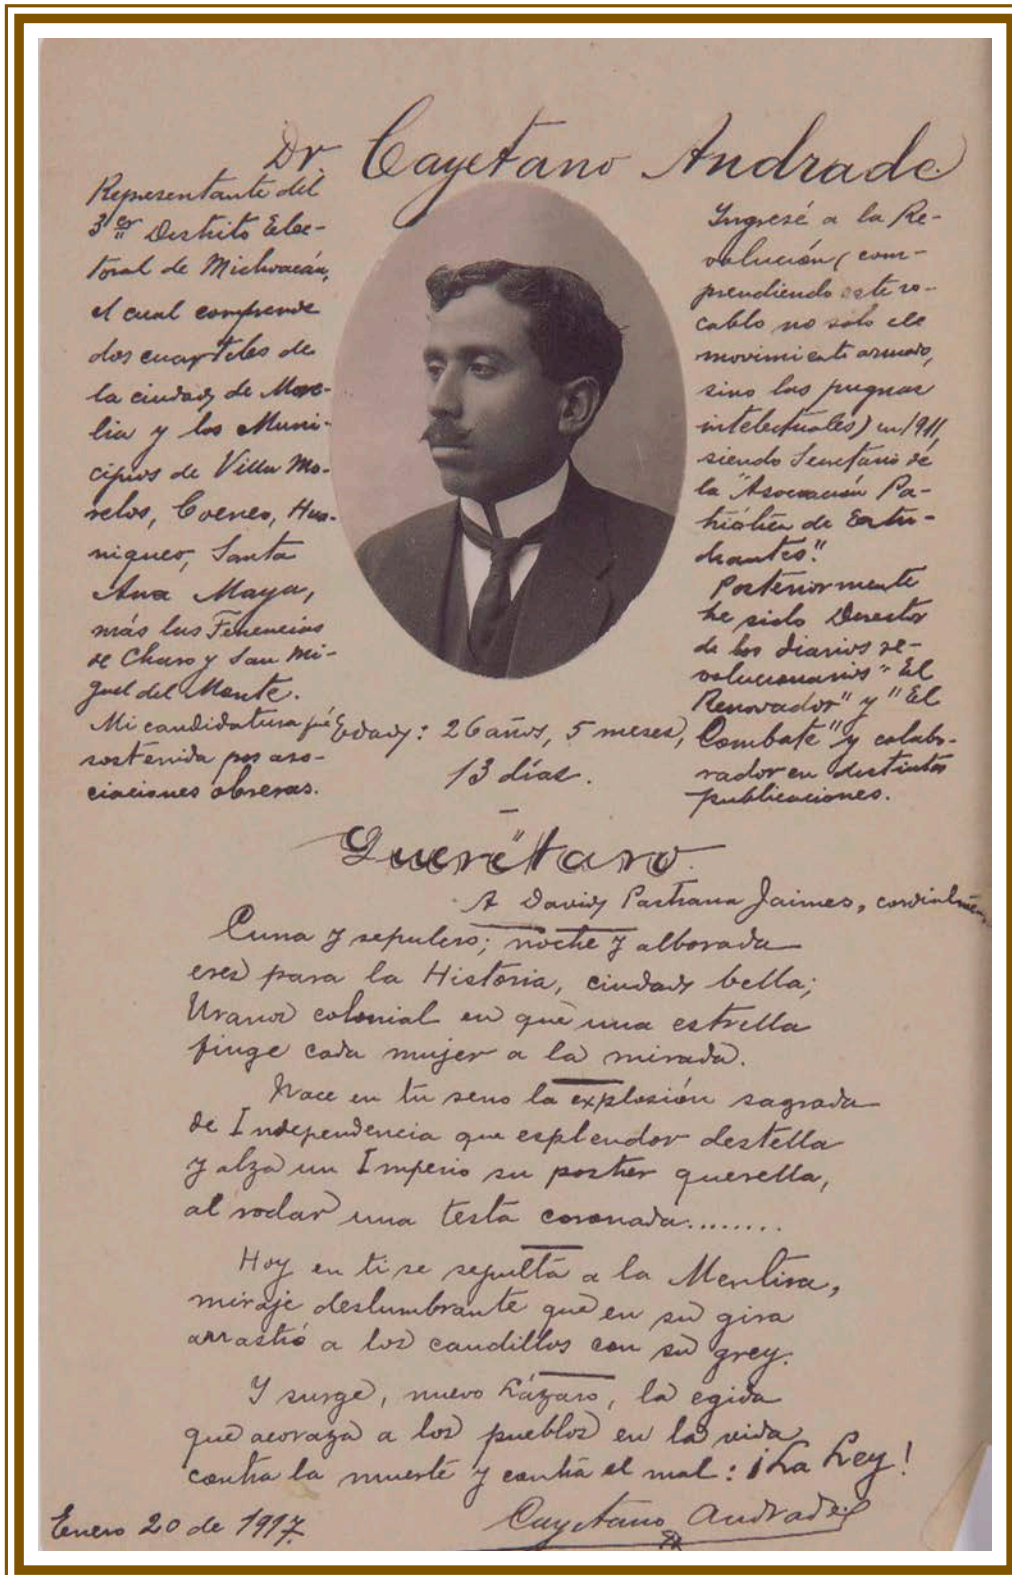 Dr. Cayetano Andrade.
Representante del
3er Distrito Elec-
toral de Michoacán,
el cual comprende
dos cuarteles de
la ciudad de More-
lia y los Muni-
cipios de Villa Mo-
relos, Coeneo, Hua-
niqueo, Santa
Ana Maya,
más las Tenencias
de Charo y San Mi-
guel del Monte.
Mi candidatura fué
sostenida por aso-
ciaciones obreras.
Edad: 26 años, 5 meses,
13 días.
Ingresé a la Re-
volución (com-
prendiendo este vo-
cablo no solo el
movimiento armado,
sino las pugnas
intelectuales) en 1911,
siendo Secretario de
la "Asociación Pa-
triótica de Estu-
diantes."
Posteriormente
he sido Director
de los diarios re-
volucionarios "El
Renovador" y "El
Combate" y colabo-
rador en distintas
publicaciones.
Querétaro.
A David Pastrana Jaimes, cordialmen
Cuna y sepulcro; noche y alborada
eres para la Historia, ciudad bella;
Uranos colonial en que una estrella
finge cada mujer a la mirada.
Nace en tu seno la explosión sagrada
de Independencia que esplendor destella
y alza un Imperio su postrer querella,
al rodar una testa coronada........
Hoy en ti se sepulta a la Mentira,
miraje deslumbrante que en su gira
arrastró a los caudillos con su grey.
Y surge, nuevo Lázaro, la egida
que acoraza a los pueblos en la vida
contra la muerte y contra el mal: ¡La Ley!
Enero 20 de 1917.
Cayetano Andrade